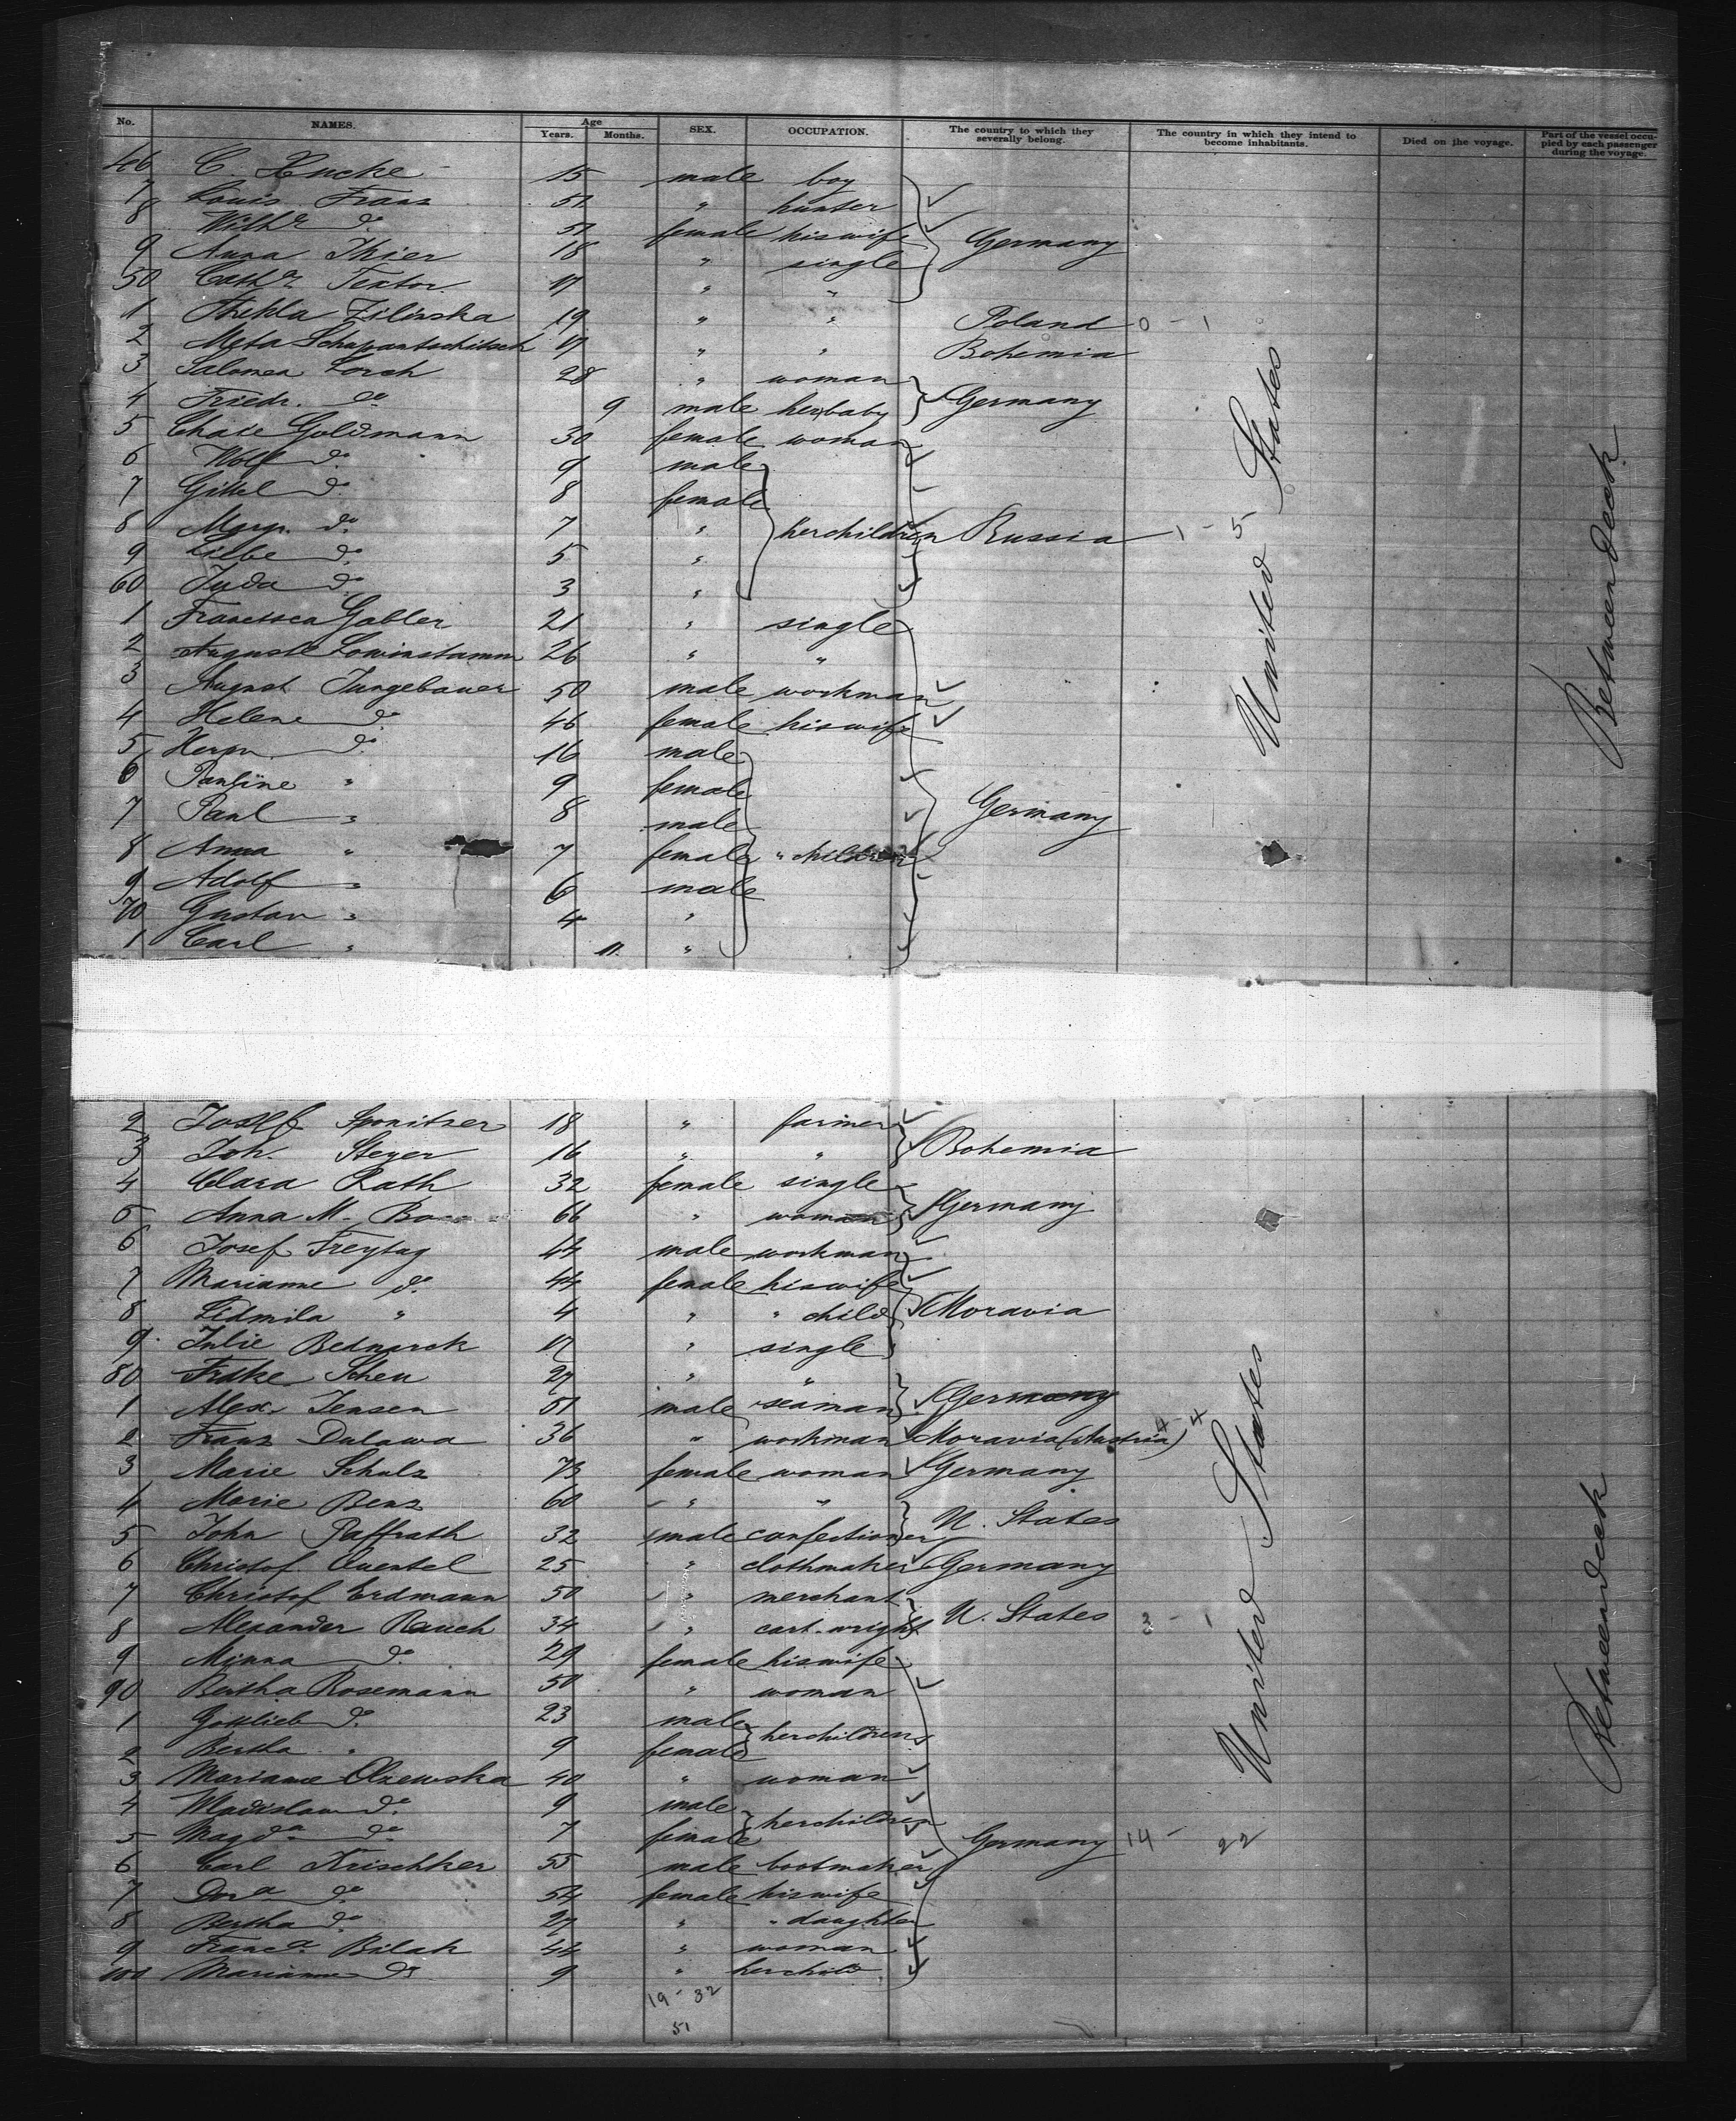 No. NAMES. Age Years. Months. SEX. OCCUPATION. The country to which they severally belong. The country in which they intend to become inhabitants. Died on the voyage. Part of the vessel occupied by each passenger during the voyage.
466 C. 15 male boy
7 Louis Franz 51 " hunter
8 Wilhe do 51 female his wife Germany
9 Anna Thier 18 " single
50 Cathe Textor 17 " "
1 Thekla Zilinska 19 " " Poland 0 - 1
2 Meta 17 " " Bohemia
3 Salomea Lorch 28 " woman
4 Friedr. do 9 male her baby Germany
5 Chaie Goldmann 30 female woman
6 Wolf do 9 male
7 Gittel do 8 female
8 do 7 " her children Russia 1 - 5
9 Liebe do 5 "
60 Juda do 3 "
1 Francisca Gabler 21 " single
2 Auguste Lowinstamm 26 " "
3 August Jungebauer 50 male workman
4 Helene do 46 female his wife
5 Herm. do 16 male
6 Pauline " 9 female
7 Paul " 8 male Germany
8 Anna " 7 female " children
9 Adolf " 6 male
70 Gustav " 4 "
1 Carl " 11 "
United States
Betweendeck
2 Josef Sponitzer 18 " farmer
3 Joh. Steyer 16 " " Bohemia
4 Clara Rath 32 female single
5 Anna M. 66 " woman Germany
6 Josef Freytag 44 male workman
7 Marianne do 44 female his wife
8 Ludmila " 4 " " child Moravia
9 Julie Bednarek 17 " single
80 Fridke Scheu 27 " "
1 Alex. Jensen 51 male seaman Germany
2 Franz Dulawa 36 " workman Moravia (Austria)
3 Marie Schulz 73 female woman Germany
4 Marie Benz 60 " "
5 John Paffrath 32 male confectioner U. States
6 Christof. Quentel 25 " clothmaker Germany
7 Christof Erdmann 50 " merchant
8 Alexander Rauch 34 " cart-wright U. States
9 Minna do 29 female his wife
90 Bertha Rosemann 50 " woman
1 Gottlieb do 23 male her children
2 Bertha " 9 female
3 Marianne Olzewska 40 " woman
4 Wladislaw do 9 male her children
5 Magda do 7 female Germany 14 - 22
6 Carl Krischker 55 male bootmaker
7 do 54 female his wife
8 Bertha do 27 " " daughter
9 Franca Bilak 44 " woman
100 Marianne do 9 " her child
19 - 32
51
United States
Betweendeck